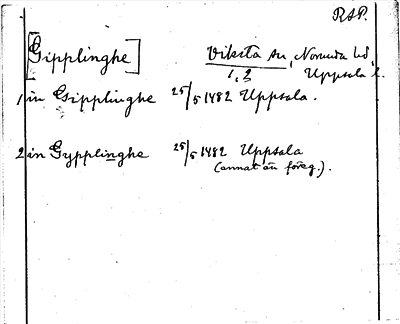 RAP.
[Gipplinghe] Viksta sn, Norunda hd,
1, 2 Uppsala l.
1 in Gipplinghe 25/5 1482 Uppsala.
2 in Gypplinghe 25/5 1482 Uppsala
(annat än föreg.).